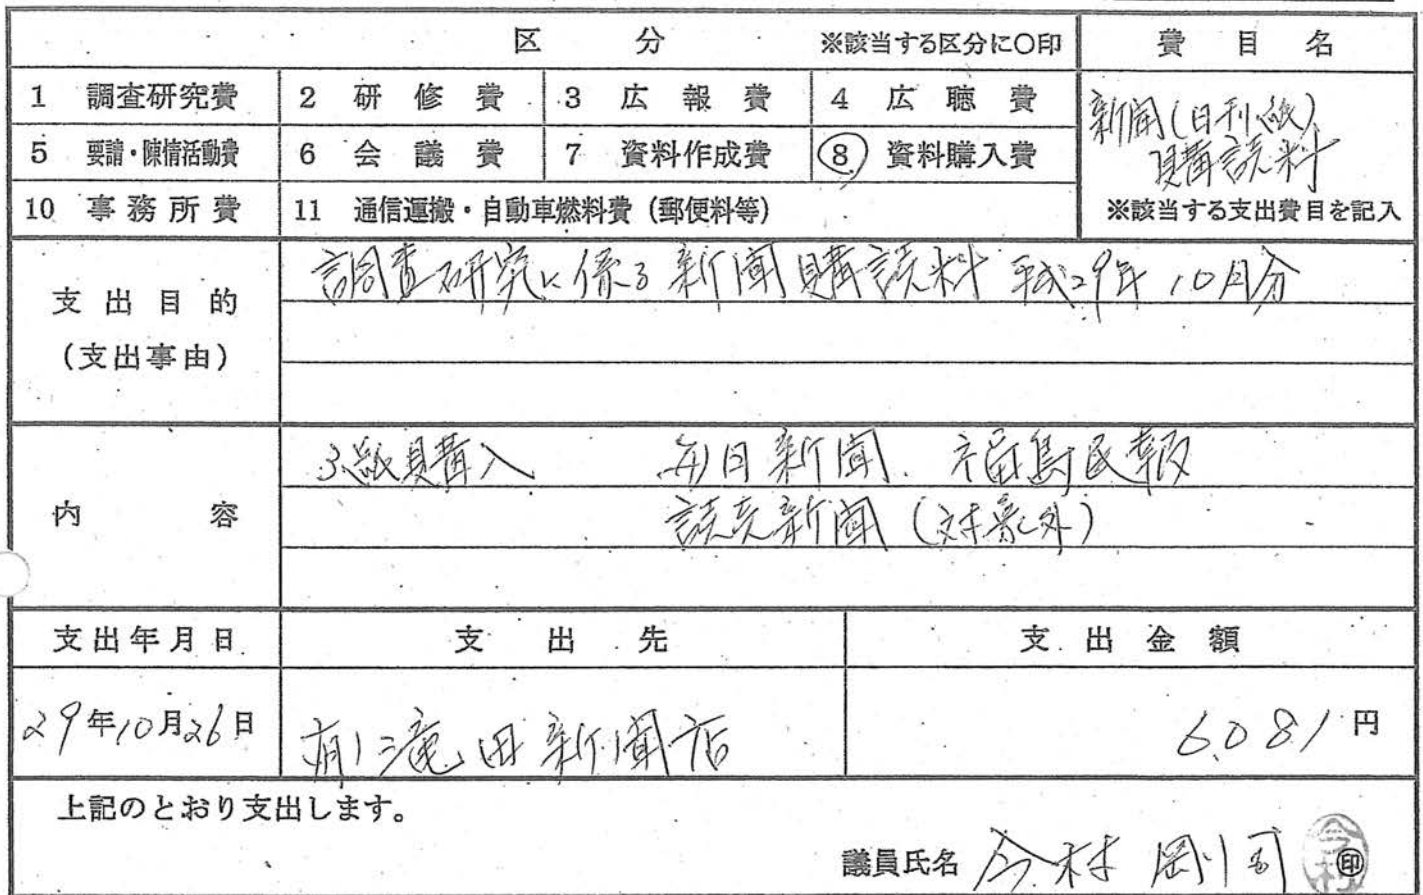 区 分 ※該当する区分に○印 費 目 名
1 調査研究費 2 研 修 費 3 広 報 費 4 広 聴 費
新聞(日刊紙)
購読料
5 要請・陳情活動費 6 会 議 費 7 資料作成費 8 資料購入費
10 事務所費 11 通信運搬・自動車燃料費(郵便料等) ※該当する支出費目を記入
支出目的
(支出事由)
調査研究に係る新聞購読料 平成29年10月分
内 容
3紙購入 毎日新聞、福島民報
読売新聞(対象外)
支出年月日 支 出 先 支 出 金 額
29年10月26日 有)滝田新聞店 6,081円
上記のとおり支出します。
議員氏名 今村 剛司 印